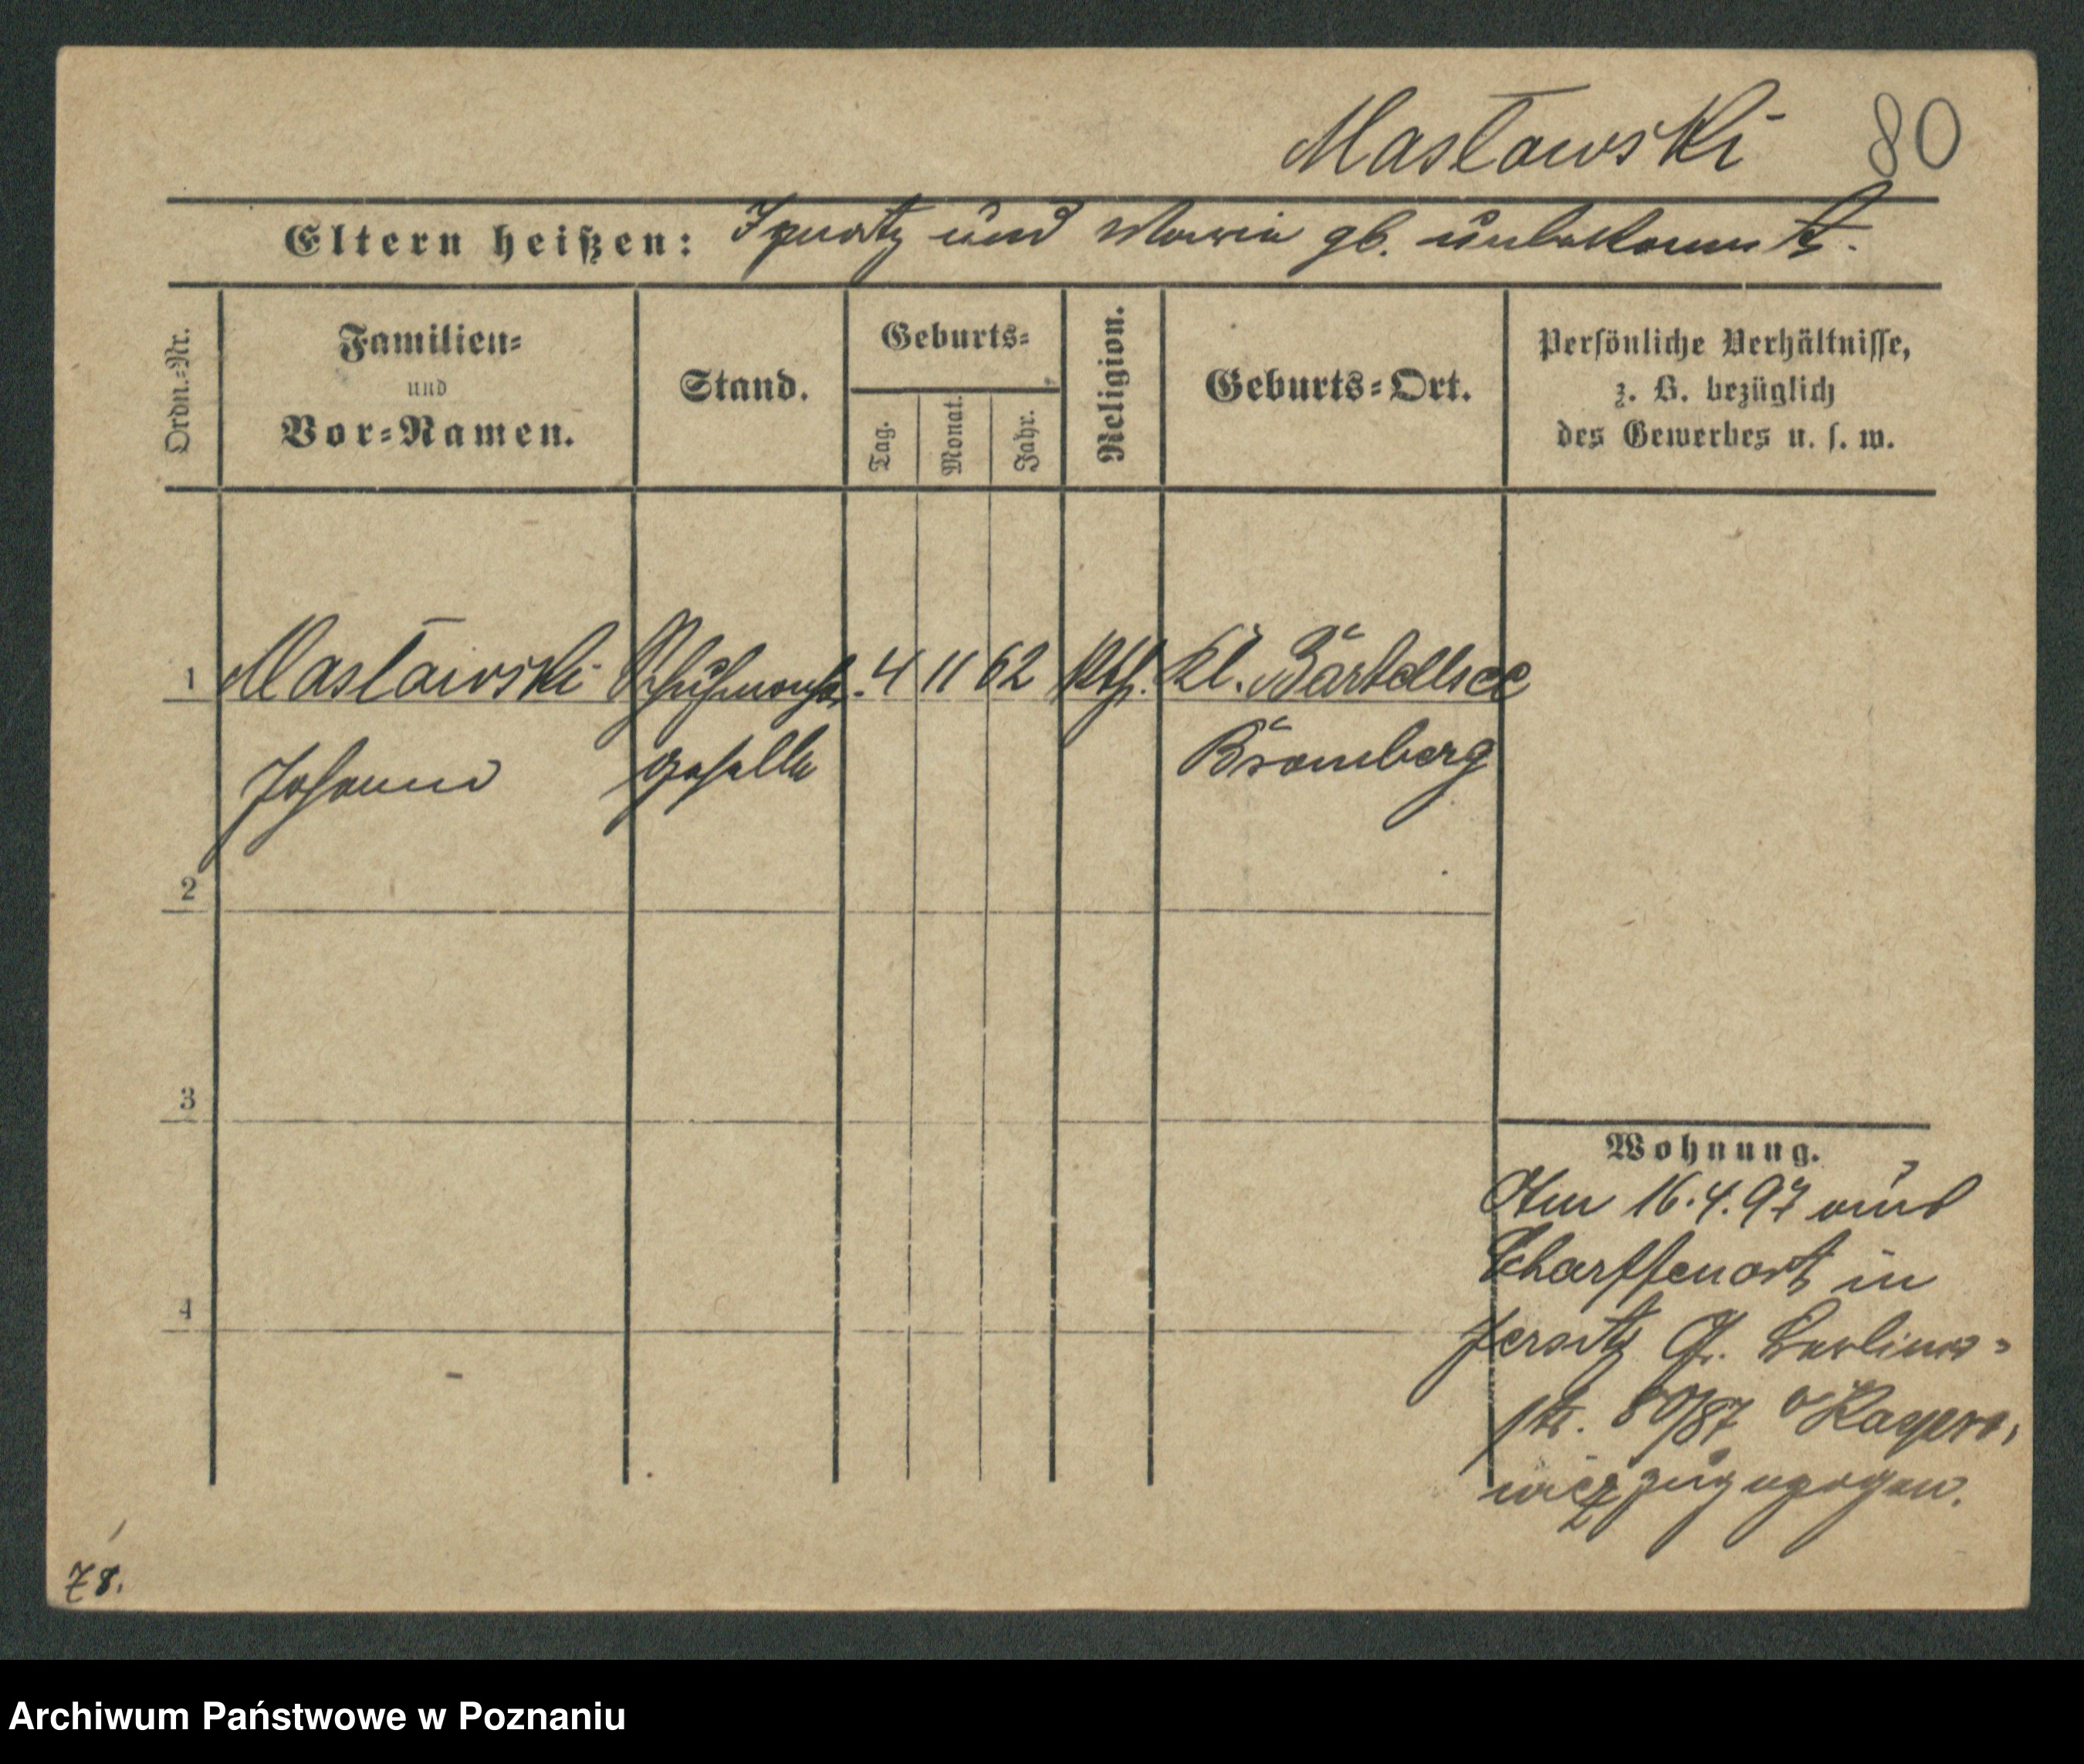 Masławski 80
Eltern heißen: Ignatz und Maria gb. unbekannt.
Ordn.-Nr.
Familien-
und
Vor-Namen.
Stand.
Geburts-
Tag.
Monat.
Jahr.
Religion.
Geburts-Ort.
Persönliche Verhältnisse,
z. B. bezüglich
des Gewerbes u. s. w.
1 Masławski Schuhmach. 4 11 62 kth. Kl. Bartellsee
Johann geselle Bromberg
2
3
4
Wohnung.
Am 16.4.97 aus
Scharffenort in
Jersitz Gr. Berliner-
str. 80/87
zugezogen.
78.
Archiwum Państwowe w Poznaniu